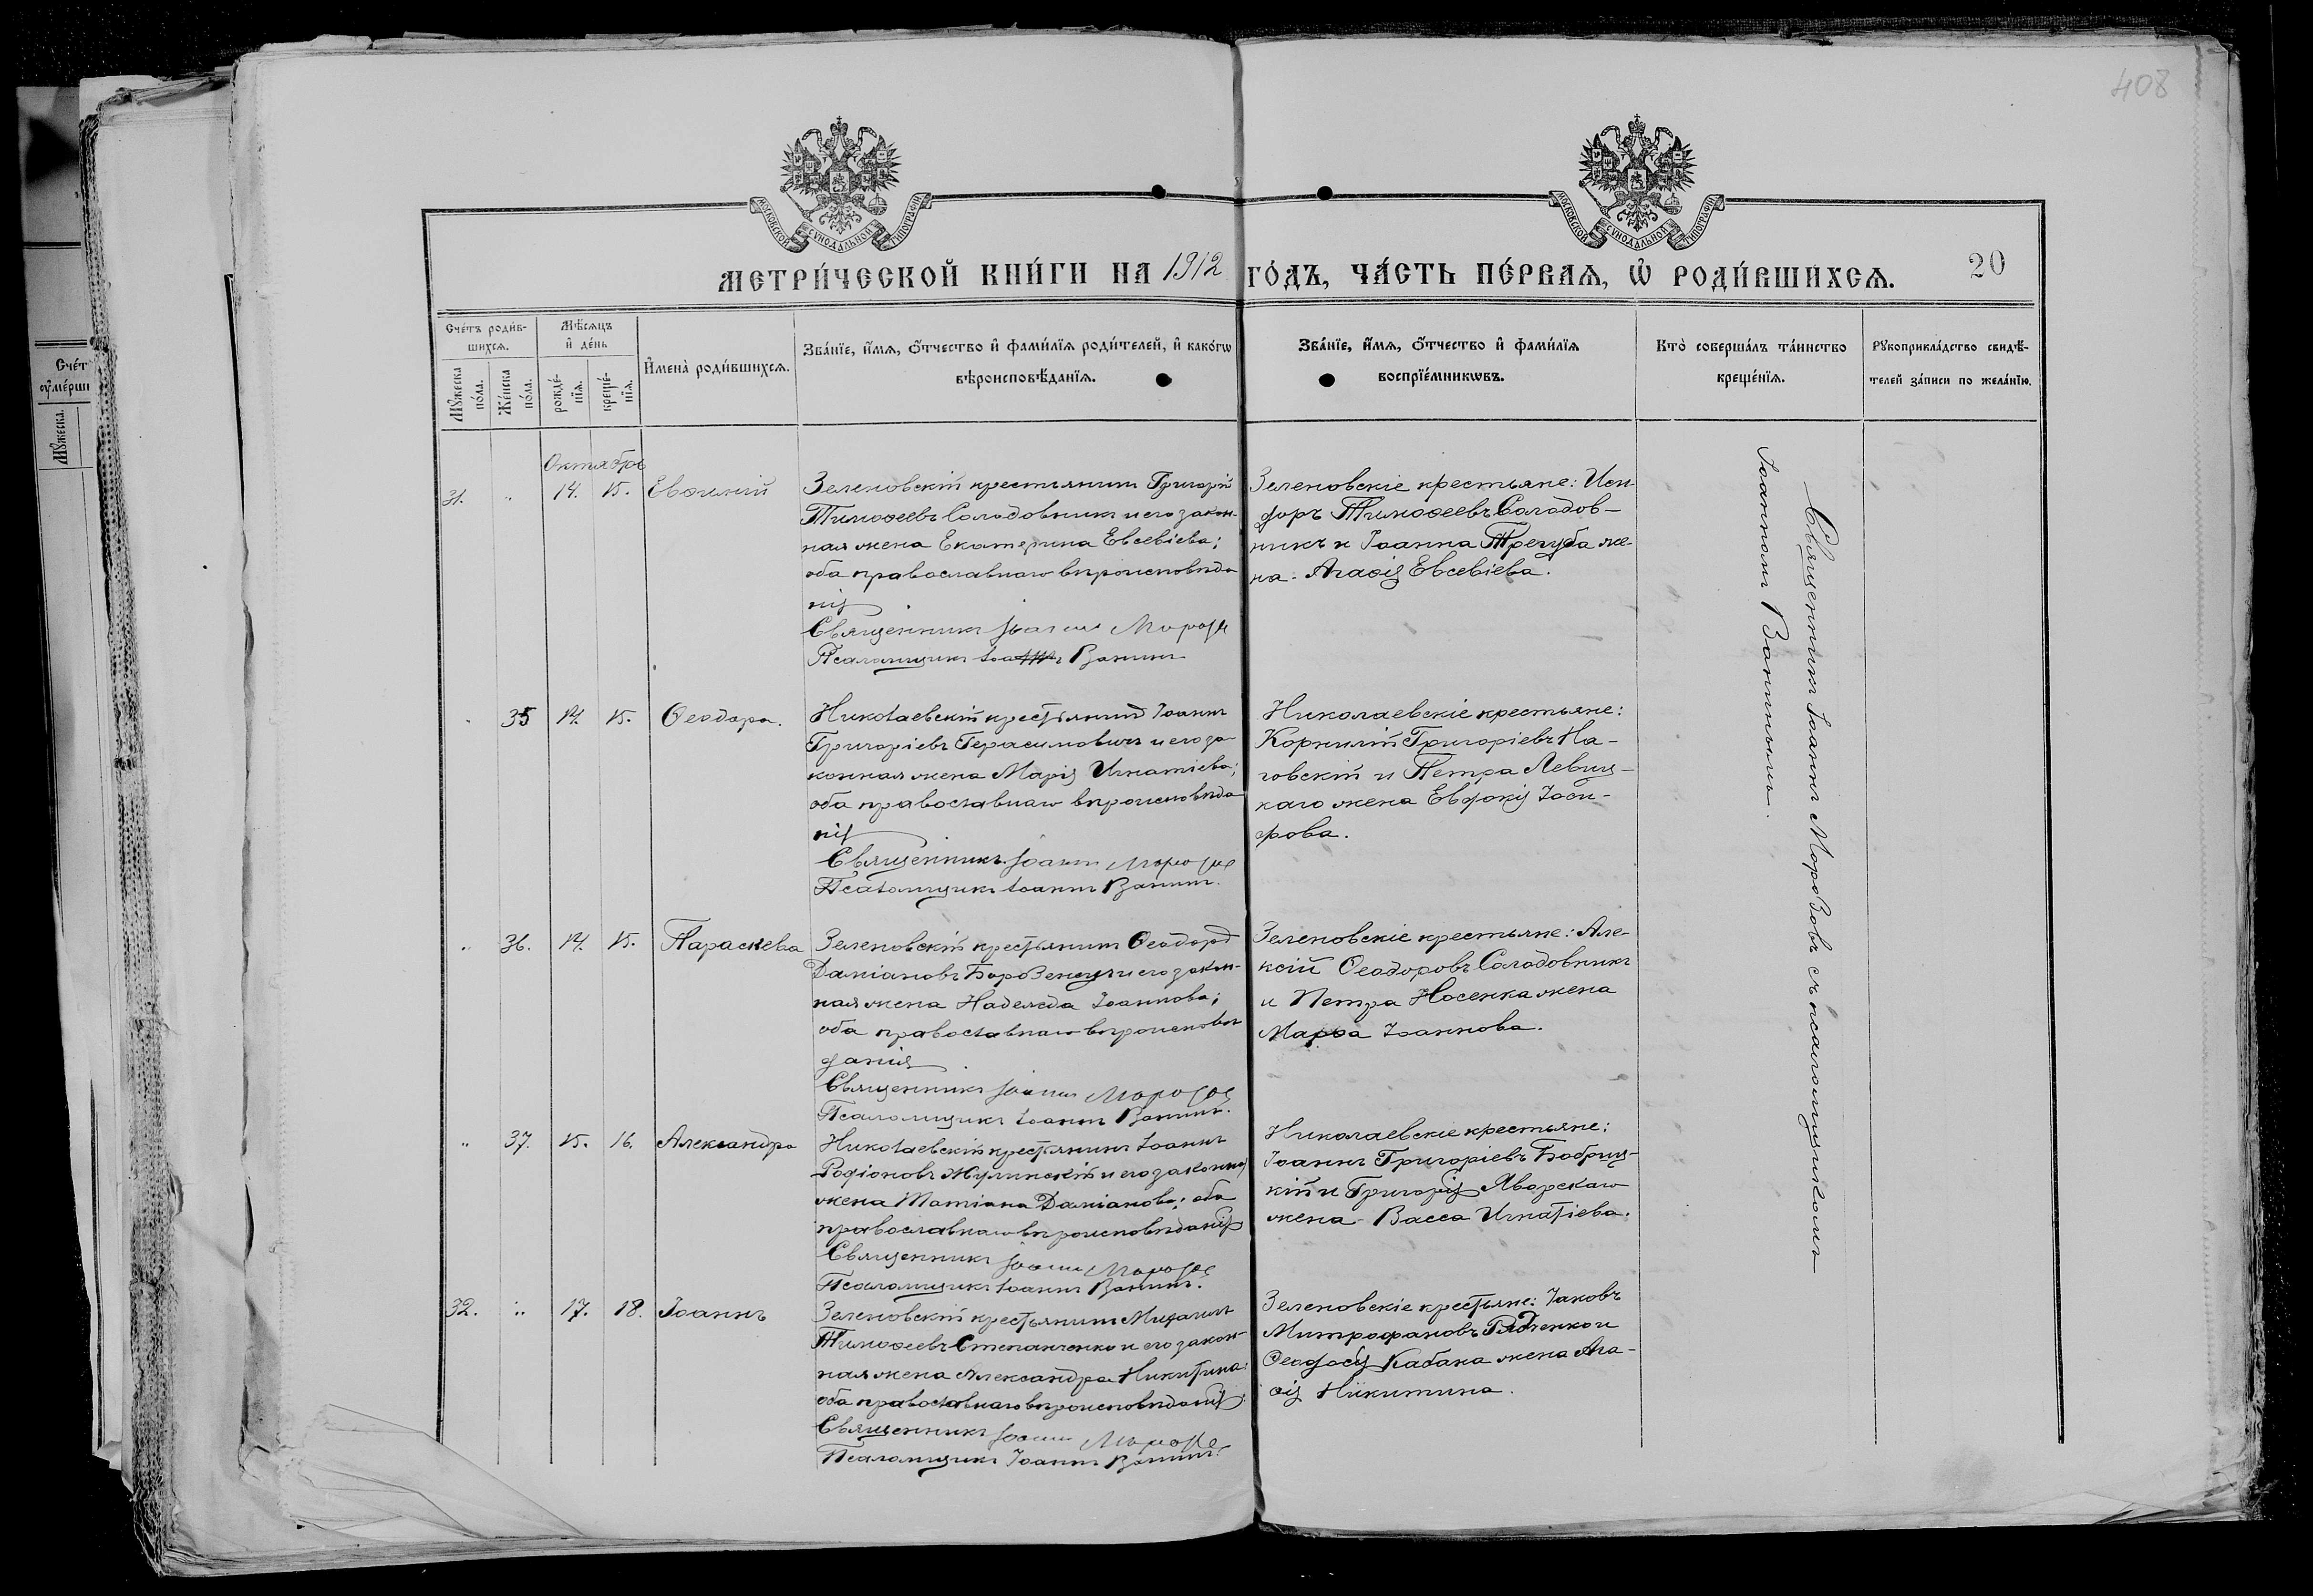 408
МОСКОВСКОЙ СѴНОДАЛЬНОЙ ТИПОГРАФІИ
МОСКОВСКОЙ СѴНОДАЛЬНОЙ ТИПОГРАФІИ
МЕТРИ́ЧЕСКОЙ КНИ́ГИ НА 1912 ГО́ДЪ, ЧА́СТЬ ПЕ́РВАЯ, Ѡ РОДИ́ВШИХСЯ.
20
Сче́тъ роди́в-
шихся.
Мѣ́сяцъ
и де́нь
Мꙋ́жеска
по́ла.
Же́нска
по́ла.
рожде́-
нїя.
креще́-
нїя.
Имена̀ роди́вшихся.
Зва́нїе, и́мя, о́тчество и фами́лїя роди́телей, и како́гѡ
вѣроисповѣ́данїя.
Зва́нїе, и́мя, о́тчество и фами́лїя
воспрїе́мникѡвъ.
Кто̀ соверша́лъ та́инство
креще́нїя.
Рꙋкоприкла́дство свидѣ́-
телей за́писи по жела́нїю.
Счет
ᲂумерши
Мꙋжеска.
Октябрь
31. " 14. 15. Евѳимій
Зеленовскій крестьянинъ Григорій
Тимоѳеевъ Солодовникъ и его закон-
ная жена Екатерина Евсевіева;
оба православнаго вѣроисповѣда
нія
Священникъ Іоаннъ Морозовъ
Псаломщикъ Іоаннъ Ванинъ
Зеленовскіе крестьяне: Иси-
доръ Тимоѳеевъ Солодов-
никъ и Іоанна Трегуба же-
на Агаѳія Евсевіева.
" 35 14. 15. Ѳеодора.
Николаевскій крестьянинъ Іоаннъ
Григоріевъ Герасимовичъ и его за-
конная жена Марія Игнатіева;
оба православнаго вѣроисповѣда
нія
Священникъ Іоаннъ Морозовъ
Псаломщикъ Іоаннъ Ванинъ.
Николаевскіе крестьяне:
Корнилій Григоріевъ На-
говскій и Петра Левиц-
каго жена Евдокія Іоси-
фова.
" 36. 14. 15. Параскева
Зеленовскій крестьянинъ Ѳеодоръ
Даміановъ и его закон-
ная жена Надежда Іоаннова;
оба православнаго вѣроисповѣ
данія
Священникъ Іоаннъ Морозовъ
Псаломщикъ Іоаннъ Ванинъ.
Зеленовскіе крестьяне: Але-
ксій Ѳеодоровъ Солодовникъ
и Петра Носенка жена
Марѳа Іоаннова.
" 37. 15. 16. Александра
Николаевскій крестьянинъ Іоаннъ
Родіоновъ Жулинскій и его законная
жена Татіана Даміанова; оба
православнаго вѣроисповѣданія
Священникъ Іоаннъ Морозовъ
Псаломщикъ Іоаннъ Ванинъ.
Николаевскіе крестьяне:
Іоаннъ Григоріевъ Бобриц-
кій и Григорія Яворскаго
жена Васса Игнатіева.
32. " 17. 18. Іоаннъ
Зеленовскій крестьянинъ Михаилъ
Тимоѳеевъ Степанченко и его закон-
ная жена Александра Никитина;
оба православнаго вѣроисповѣданія.
Священникъ Іоаннъ Морозовъ
Псаломщикъ Іоаннъ Ванинъ.
Зеленовскіе крестьяне: Іаковъ
Митрофановъ Рябченко и
Ѳеодосія Кабака жена Ага-
ѳія Никитина.
Священникъ Іоаннъ Морозовъ съ псаломщикомъ
Іоанномъ Ванинымъ.